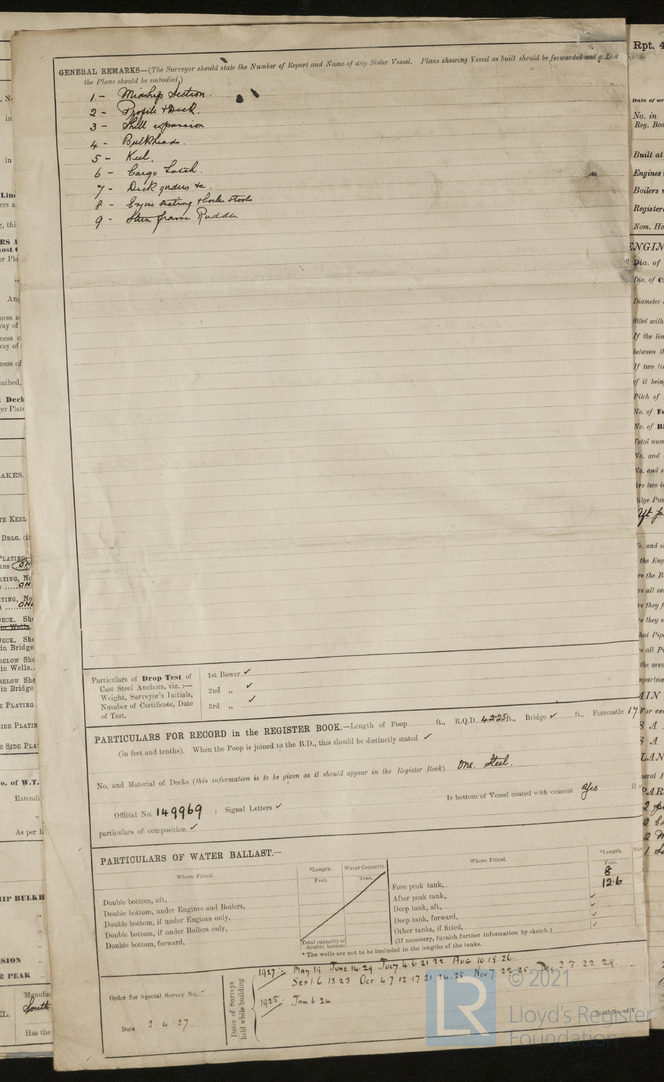 GENERAL REMARKS—(The Surveyor should state the Number of Report and Name of any Sister Vessel. Plans showing Vessel as built should be forwarded and a List
the Plans should be embodied.)
1 - Midship Section.
2 - Profile & Deck.
3 - Shell expansion
4 - Bulkheads.
5 - Keel.
6 - Cargo hatch.
7 - Deck girders &c.
8 - Engine seating & boiler stools
9 - Stern frame Rudder
Particulars of Drop Test of
Cast Steel Anchors, viz. :—
Weight, Surveyor's Initials,
Number of Certificate, Date
of Test.
1st Bower ✓
2nd „ ✓
3rd „ ✓
PARTICULARS FOR RECORD in the REGISTER BOOK.—Length of Poop ft., R.Q.D. 42·25 ft., Bridge ✓ ft., Forecastle 17
(in feet and tenths). When the Poop is joined to the B.D., this should be distinctly stated ✓
No. and Material of Decks (this information is to be given as it should appear in the Register Book) One Steel
Official No. 149969 ; Signal Letters ✓ Is bottom of Vessel coated with cement Yes
particulars of composition ✓
PARTICULARS OF WATER BALLAST.—
Where Fitted. *Length. Feet. Water Capacity Tons.
Double bottom, aft,
Double bottom, under Engines and Boilers,
Double bottom, if under Engines only,
Double bottom, if under Boilers only,
Double bottom, forward,
Total capacity of double bottom
Where Fitted. *Length. Feet.
Fore peak tank, 8
After peak tank, 12·6
Deep tank, aft, ✓
Deep tank, forward, ✓
Other tanks, if fitted, ✓
(If necessary, furnish further information by sketch.)
*The wells are not to be included in the lengths of the tanks.
Order for Special Survey No.
Date 2.4.27.
Dates of Surveys
held while building
1927:- May 19 June 14 29 July 4 6 21 22 Aug 10 19 26
Sep 1 6 13 23 Oct 4 7 12 17 21 24 25 Nov 7 22 25 Dec 2 7 22 29
1928 Jan 6 24
© 2021
Lloyd's Register
Foundation
LR
Rpt. 4
No. in
Reg. Boo
Built at
Engines
Boilers
Nom. Ho